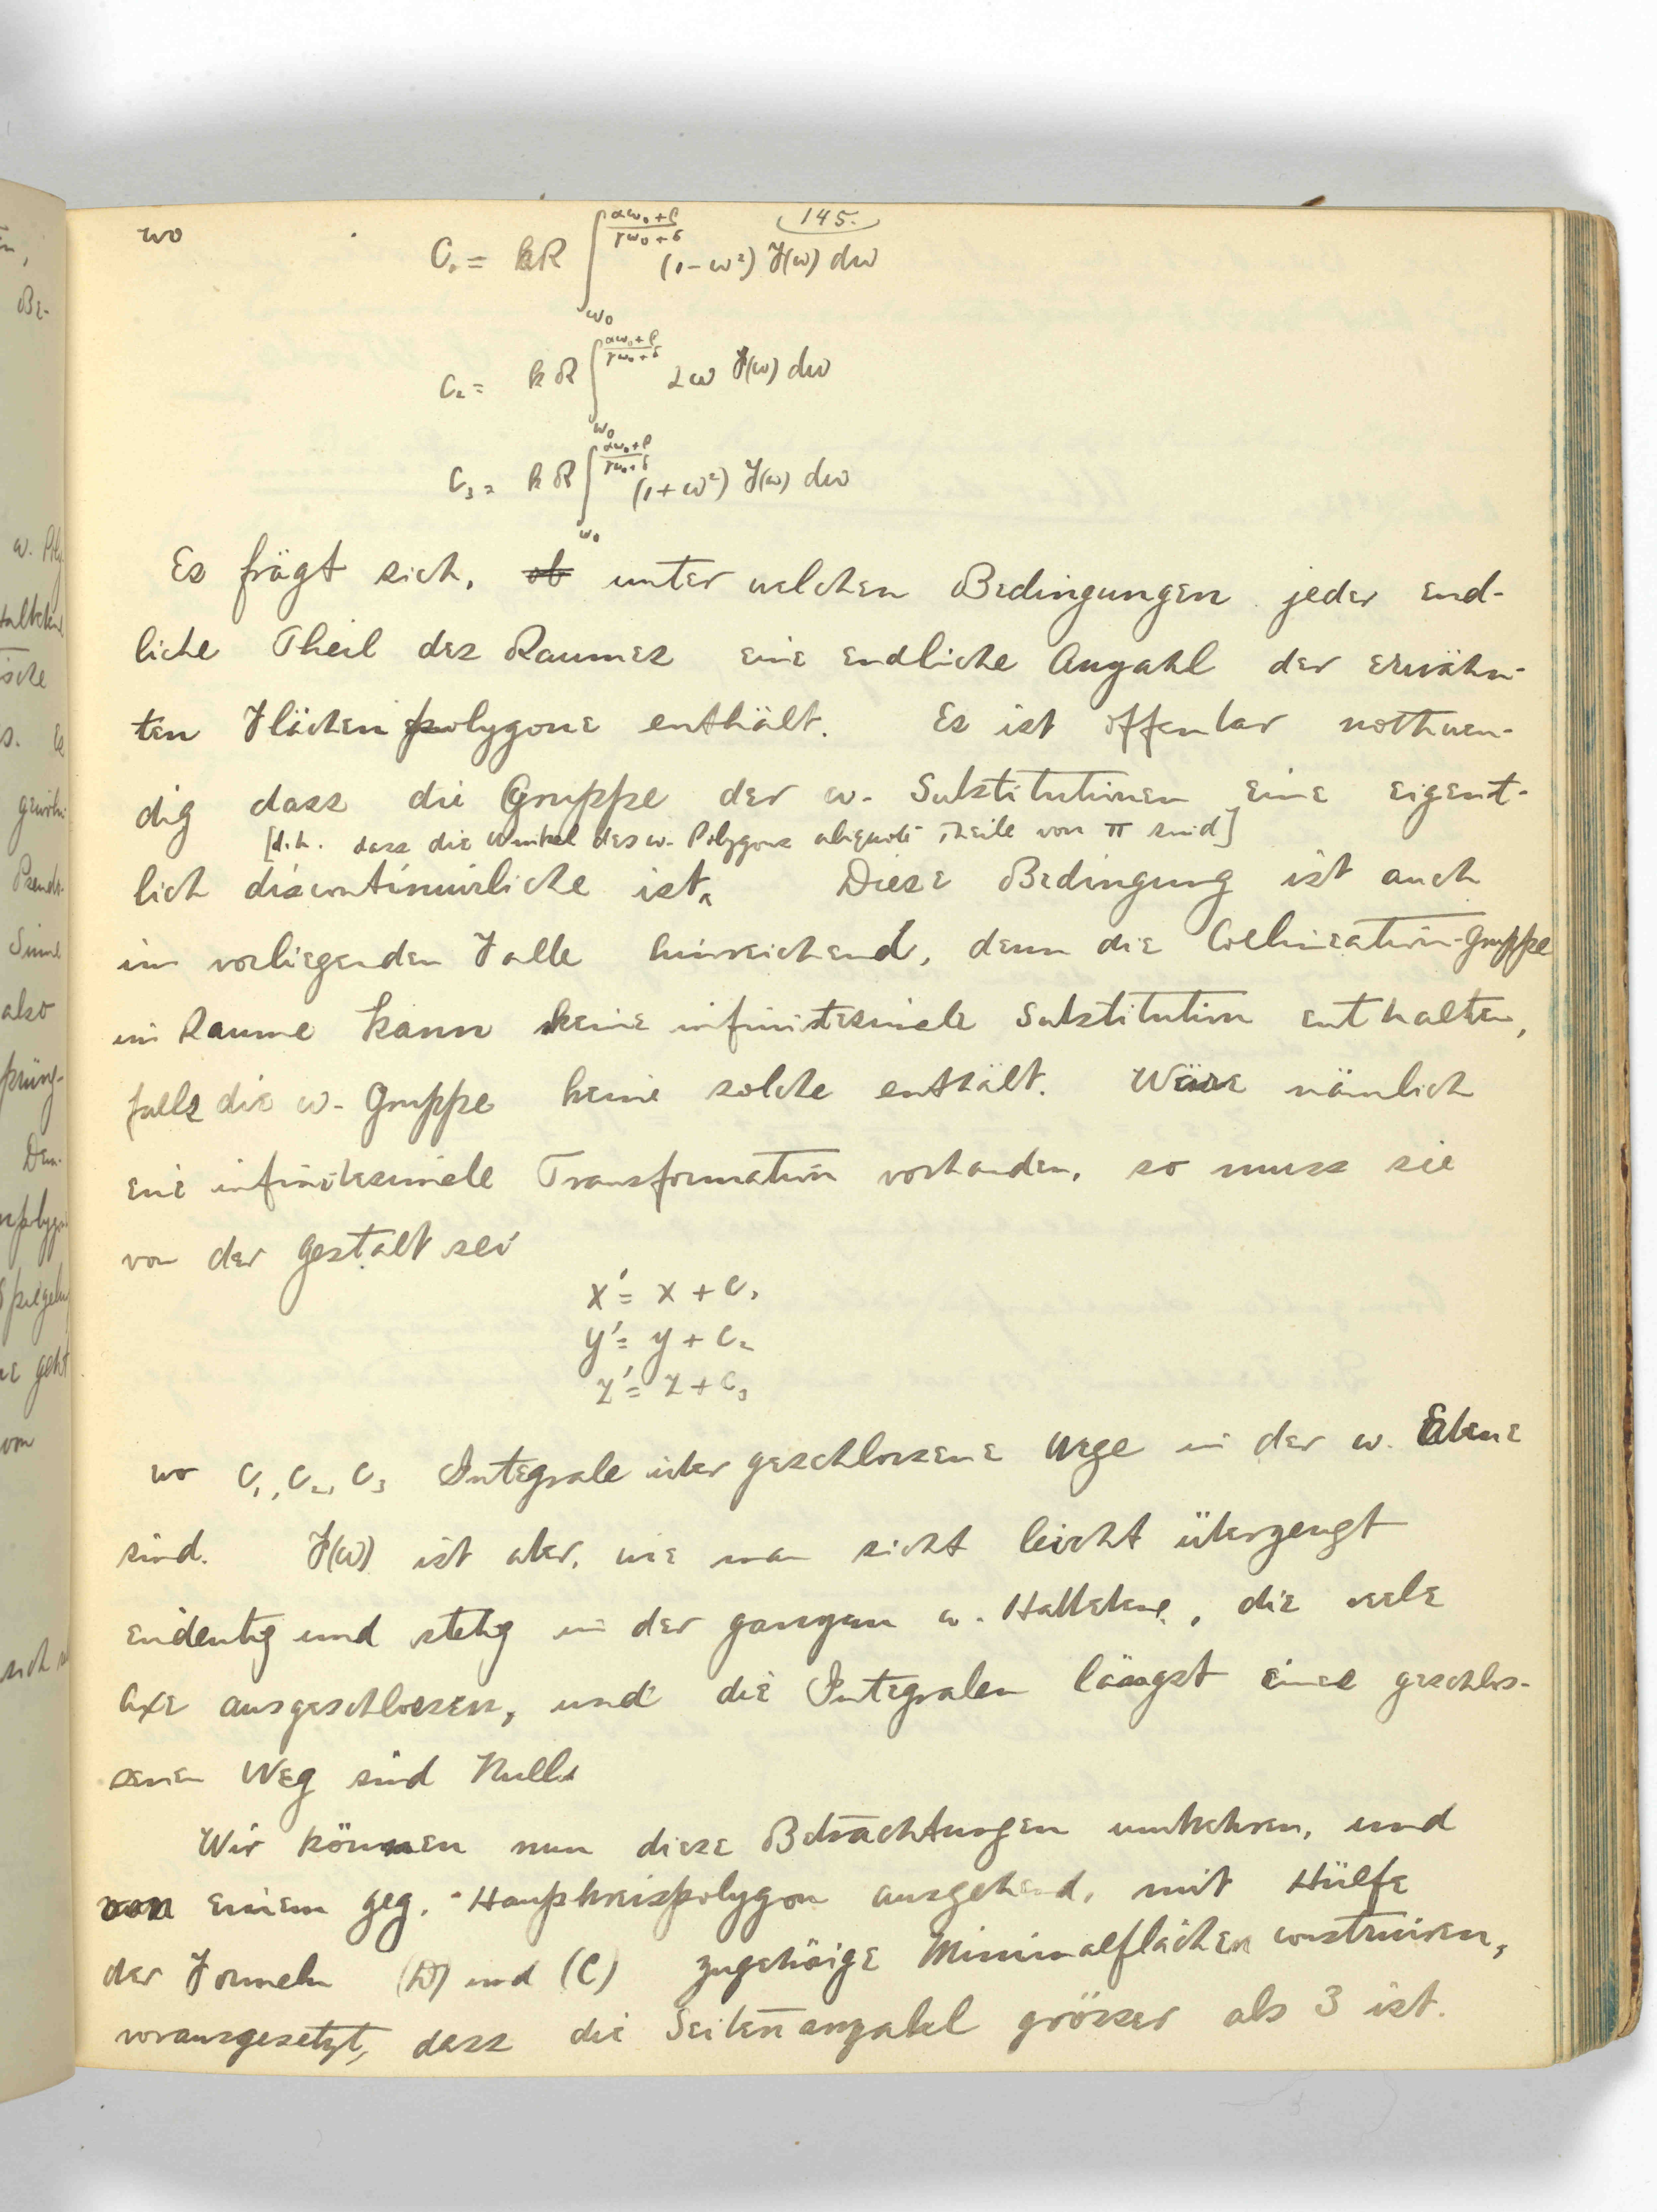 145.
wo C₁ = kR ∫_{ω₀}^{(αω₀+β)/(γω₀+δ)} (1-ω²) F(ω) dω
C₂ = kR ∫_{ω₀}^{(αω₀+β)/(γω₀+δ)} 2ω F(ω) dω
C₃ = kR ∫_{ω₀}^{(αω₀+β)/(γω₀+δ)} (1+ω²) F(ω) dω
Es frägt sich, ob unter welchen Bedingungen jeder end-
liche Theil des Raumes eine endliche Anzahl der erwähn-
ten Flächenpolygone enthält. Es ist offenbar nothwen-
dig dass die Gruppe der ω- Substitutionen eine eigent-
[d.h. dass die Winkel des ω- Polygons aliquote Theile von π sind]
lich discontinuirliche ist. Diese Bedingung ist auch
im vorliegenden Falle hinreichend, denn die Collineation-Gruppe
im Raume kann keine infinitesimale Substitution enthalten,
falls die ω- Gruppe keine solche enthält. Wäre nämlich
eine infinitesimale Transformation vorhanden, so muss sie
von der Gestalt sei
x' = x + C₁
y' = y + C₂
z' = z + C₃
wo C₁, C₂, C₃ Integrale über geschlossene Wege in der ω. Ebene
sind. F(ω) ist aber, wie man sicht leicht überzeugt
eindeutig und stetig in der ganzen ω. Halbebene, die reele
Axe ausgeschlossen, und die Integralen längst eines geschlos-
senen Weg sind Null.
Wir können nun diese Betrachtungen umkehren, und
von einem geg. Haupkreispolygon ausgehend, mit Hülfe
der Formeln (D) und (C) zugehörige Minimalflächen construiren,
vorausgesetzt, dass die Seitenanzahl grösser als 3 ist.